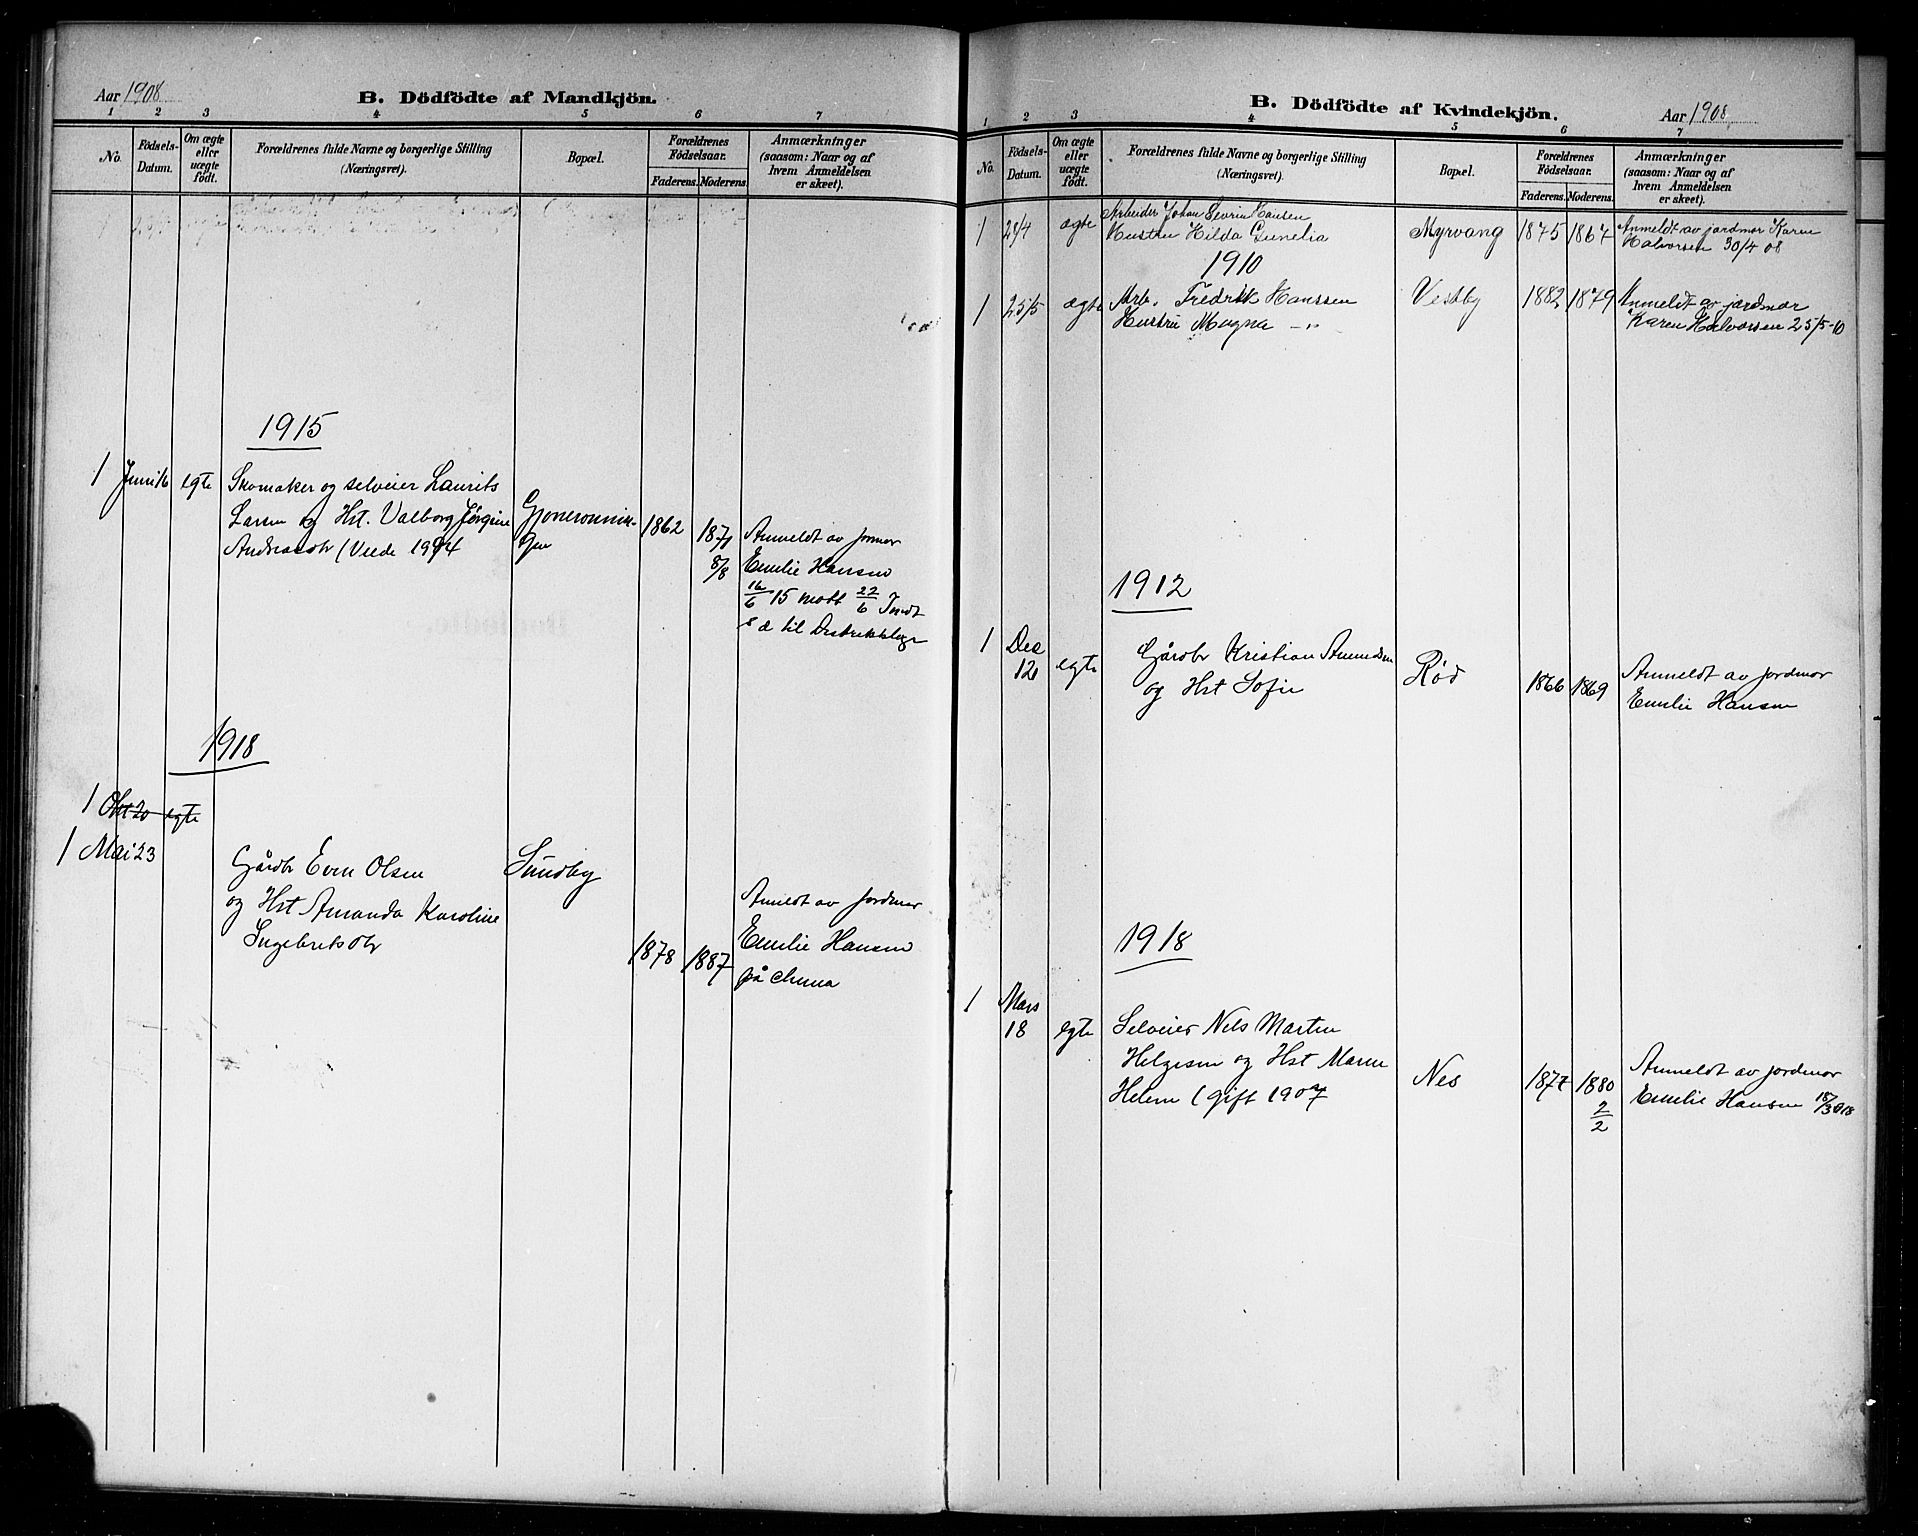 Aar 1908
B. Dödfödte af Mandkjön.
1 2 3 4 5 6 7
No.
Födsels-
Datum.
Om ægte
eller
uægte
födt.
Forældrenes fulde Navne og borgerlige Stilling
(Næringsvei).
Bopæl.
Forældrenes
Födselsaar.
Faderens. Moderens.
Anmærkninger
(saasom: Naar og af
hvem Anmeldelsen
er skeet).
1915
1 Juni 16 egte Skomaker og selveier Laurits
Larsen og Hst. Valborg Jørgine
Andreasdtr (Viede 1994
1862 1871
8/8
Anmeldt av jormor
Emilie Hansen
16/6 15 mott 22/6
s d til
1918
1 Okt 20 egte
1 Mai 23
Gårdbr Even Olsen
og Hst Amanda Karoline
Ingebriktsdtr
Sundby
1878 1887
Anmeldt av jordmor
Emilie Hansen
på
B. Dödfödte af Kvindekjön.
Aar 1908
1 2 3 4 5 6 7
No.
Födsels-
Datum.
Om ægte
eller
uægte
födt.
Forældrenes fulde Navne og borgerlige Stilling
(Næringsvei).
Bopæl.
Forældrenes
Födselsaar.
Faderens. Moderens.
Anmærkninger
(saasom: Naar og af
hvem Anmeldelsen
er skeet).
1 28/4 ægte Arbeider Johan Severin Hansen
Hustru Hilda Gunelia
Myrvang 1875 1867 Anmeldt av jordmor Karen
Halvorsen 30/4 08
1910
1 25/5 ægte Arb. Fredrik Hanssen
Hustru Magna -"-
Vestby 1882 1879 Anmeldt av jordmor
Karen Halvorsen 25/5-10
1912
1 Dec
12 egte
Gårdbr Kristian Amundsen
og Hst Sofie
Rød 1866 1869
Anmeldt av jordmor
Emilie Hansen
1918
1 Mars
18 egte
Selveier Nels Martin
Helgesen og Hst Maren
Helene (gift 1907
Nes 1877 1880
2/2
Anmeldt av jordmor
Emilie Hansen 18/3 918